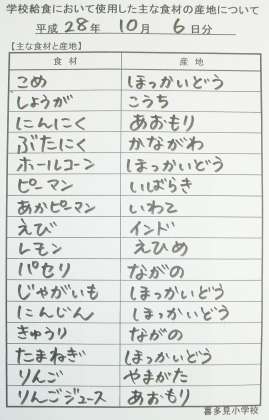 学校給食において使用した主な食材の産地について
平成 28 年 10 月 6 日分
【主な食材と産地】
食 材 産 地
こめ ほっかいどう
しょうが こうち
にんにく あおもり
ぶたにく かながわ
ホールコーン ほっかいどう
ピーマン いばらき
あかピーマン いわて
えび インド
レモン えひめ
パセリ ながの
じゃがいも ほっかいどう
にんじん ほっかいどう
きゅうり ながの
たまねぎ ほっかいどう
りんご やまがた
りんごジュース あおもり
喜多見小学校